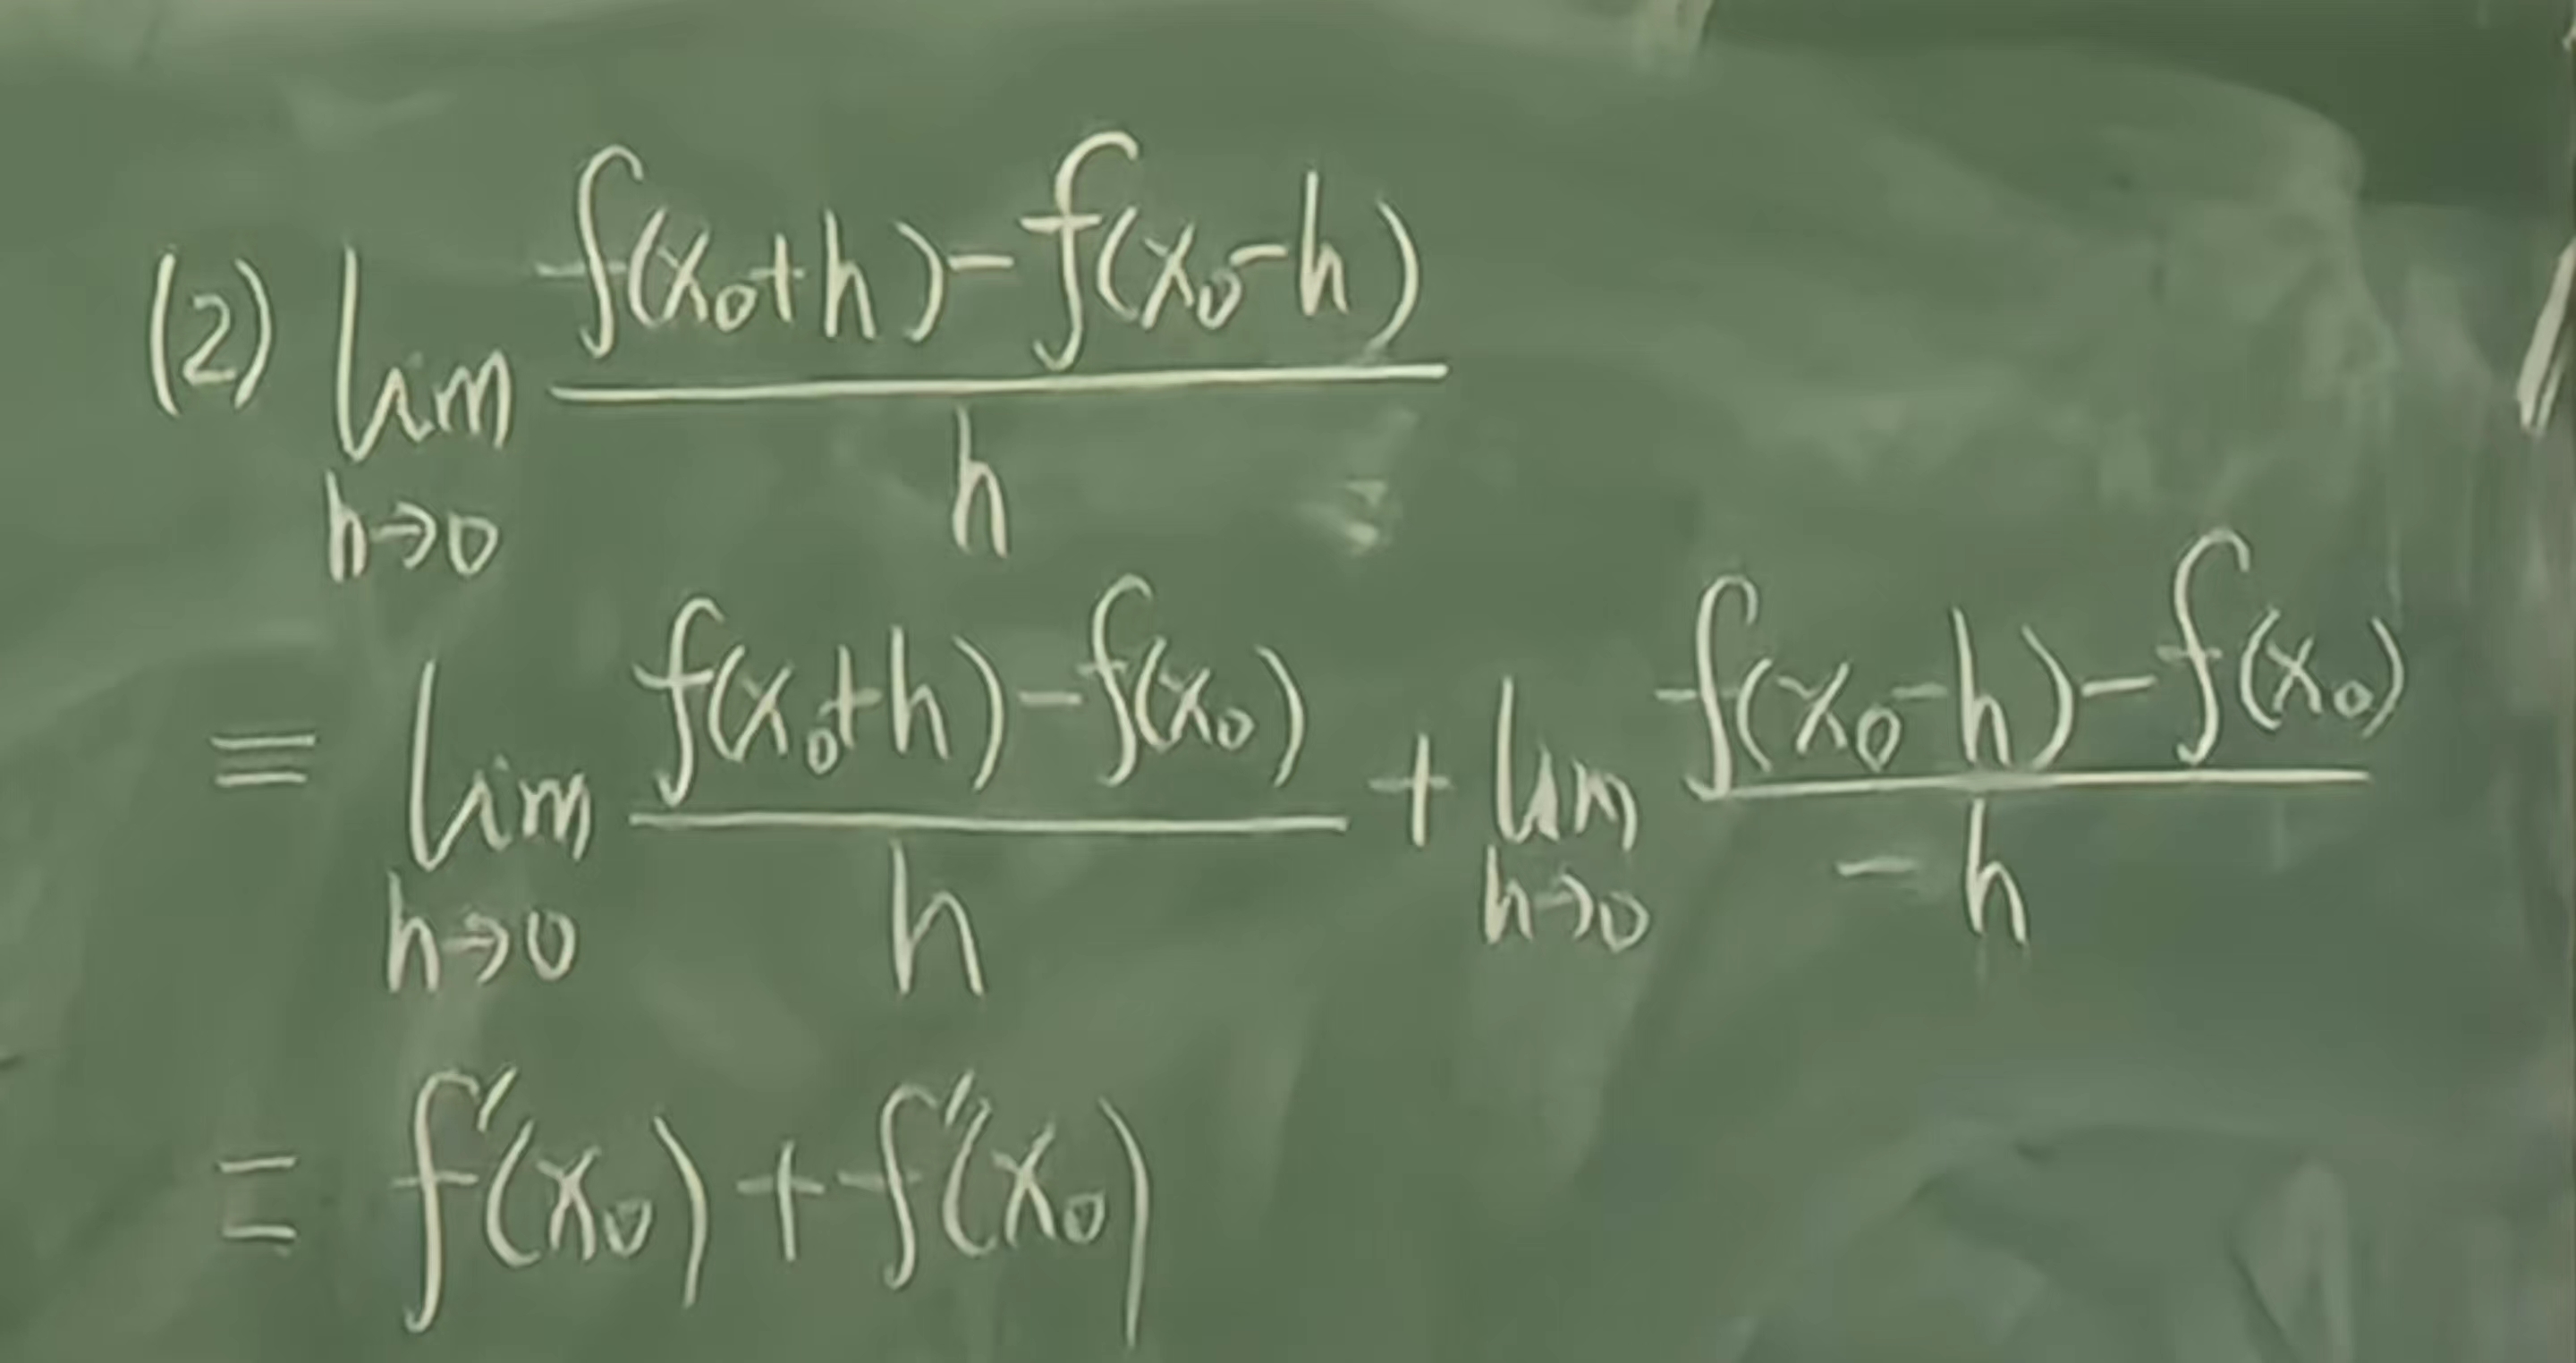 (2) lim_{h→0} \frac{f(x₀+h)-f(x₀-h)}{h}
= lim_{h→0} \frac{f(x₀+h)-f(x₀)}{h} + lim_{h→0} \frac{f(x₀-h)-f(x₀)}{-h}
= f'(x₀)+f'(x₀)